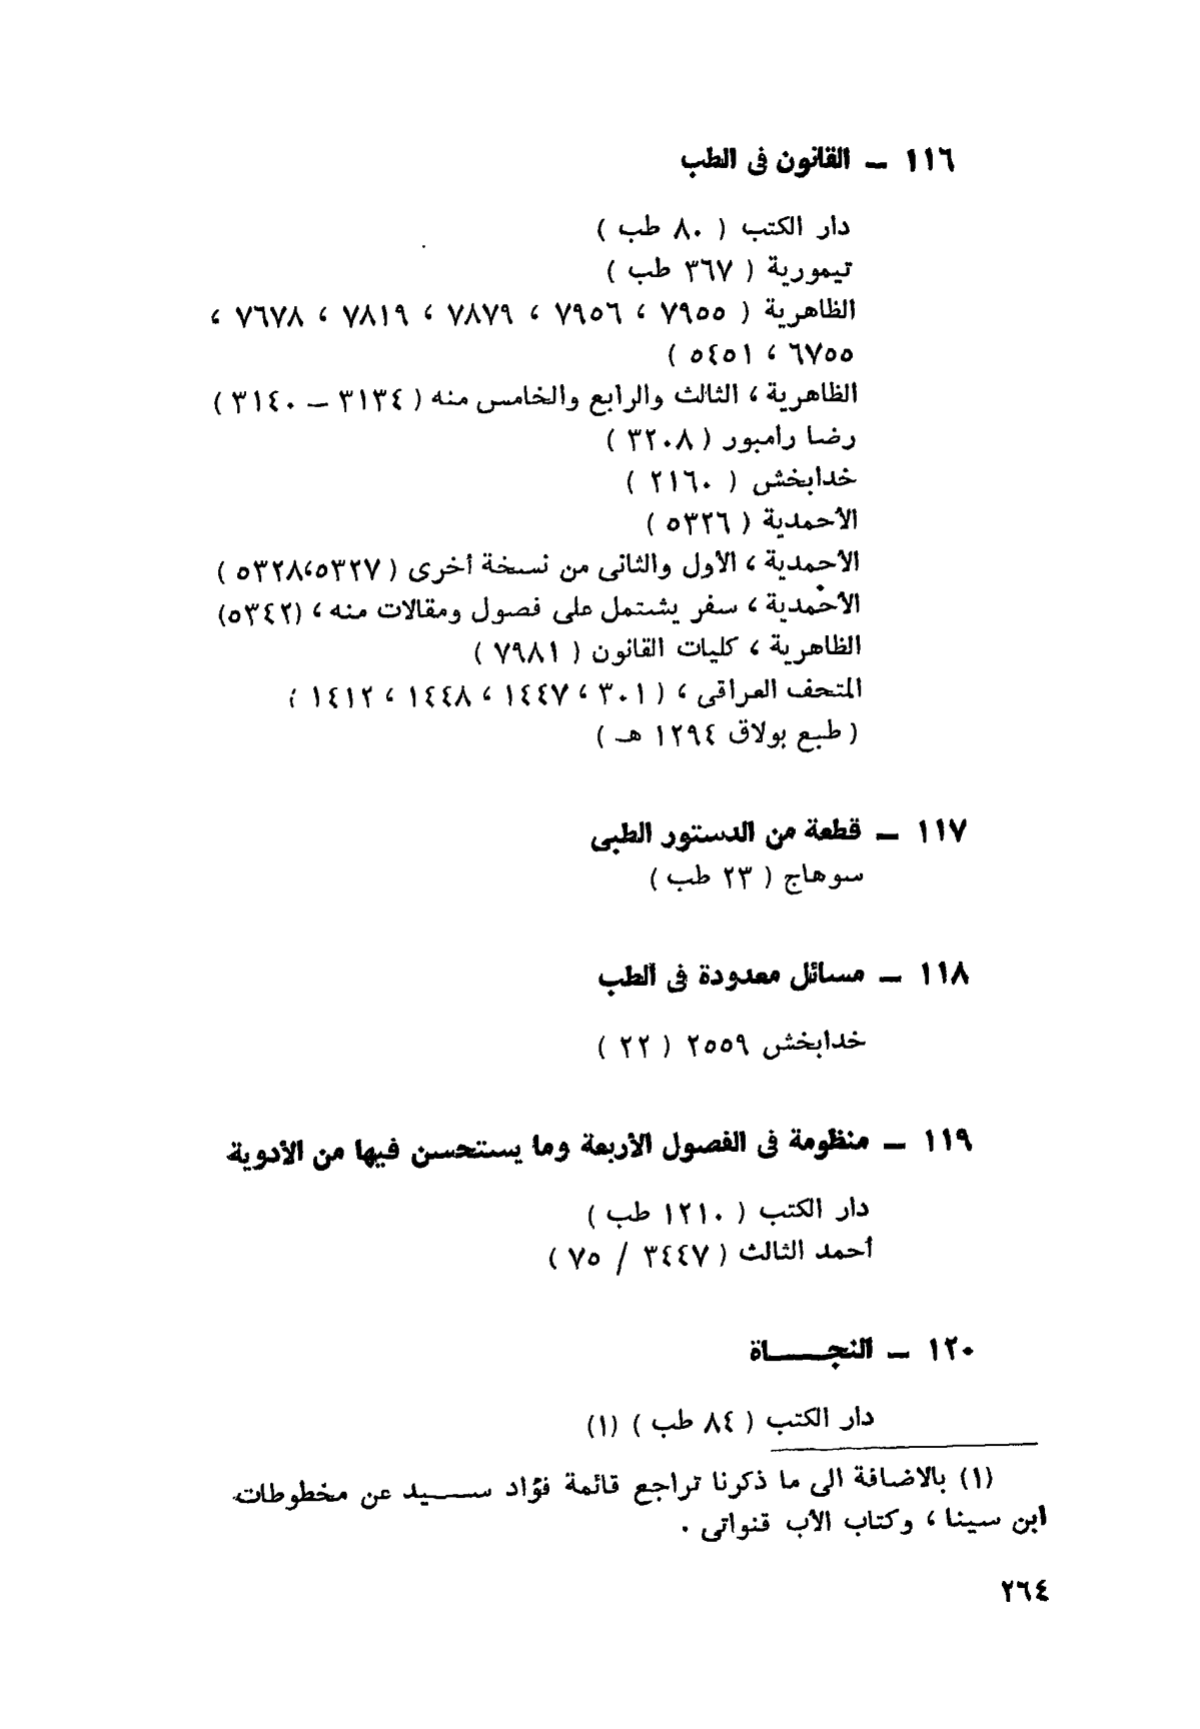 ١١٦ ــ القانون فى الطب
دار الكتب ( ٨٠ طب )
تيمورية ( ٣٦٧ طب )
الظاهرية ( ٧٩٥٥ ، ٧٩٥٦ ، ٧٨٧٩ ، ٧٨١٩ ، ٧٦٧٨ ،
٦٧٥٥ ، ٥٤٥١ )
الظاهرية ، الثالث والرابع والخامس منه ( ٣١٣٤ ــ ٣١٤٠ )
رضا رامبور ( ٣٢٠٨ )
خدابخش ( ٢١٦٠ )
الأحمدية ( ٥٣٢٦ )
الأحمدية ، الأول والثانى من نسخة أخرى ( ٥٣٢٧،٥٣٢٨ )
الأحمدية ، سفر يشتمل على فصول ومقالات منه ، (٥٣٤٢)
الظاهرية ، كليات القانون ( ٧٩٨١ )
المتحف العراقى ، ( ٣٠١ ، ١٤٤٧ ، ١٤٤٨ ، ١٤١٢ ؛
( طبع بولاق ١٢٩٤ هـ )
١١٧ ــ قطعة من الدستور الطبى
سوهاج ( ٢٣ طب )
١١٨ ــ مسائل معدودة فى الطب
خدابخش ٢٥٥٩ ( ٢٢ )
١١٩ ــ منظومة فى الفصول الأربعة وما يستحسن فيها من الأدوية
دار الكتب ( ١٢١٠ طب )
أحمد الثالث ( ٣٤٤٧ / ٧٥ )
١٢٠ ــ النجــــاة
دار الكتب ( ٨٤ طب ) (١)
(١) بالاضافة الى ما ذكرنا تراجع قائمة فؤاد ســـيد عن مخطوطات
ابن سينا ، وكتاب الأب قنواتى .
٢٦٤